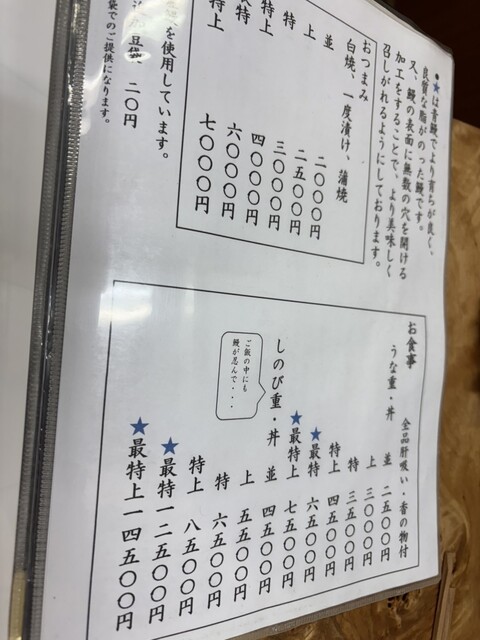 ●★は青鰻でより育ちが良く、
良質な脂がのった鰻です。
又、鰻の表面に無数の穴を開ける
加工をすることで、より美味しく
召しがれるようにしております。
おつまみ
白焼、一度漬け、蒲焼
並 二〇〇〇円
上 二五〇〇円
特 三〇〇〇円
特上 四〇〇〇円
特 六〇〇〇円
特上 七〇〇〇円
を使用しています。
豆袋 二〇円
袋でのご提供になります。
お食事 全品肝吸い・香の物付
うな重・丼
並 二五〇〇円
上 三〇〇〇円
特 三五〇〇円
特上 四五〇〇円
★最特 六五〇〇円
★最特上 七五〇〇円
しのび重・丼
ご飯の中にも
鰻が忍んで・・・
並 四五〇〇円
上 五五〇〇円
特 六五〇〇円
特上 八五〇〇円
★最特 一二五〇〇円
★最特上 一四五〇〇円